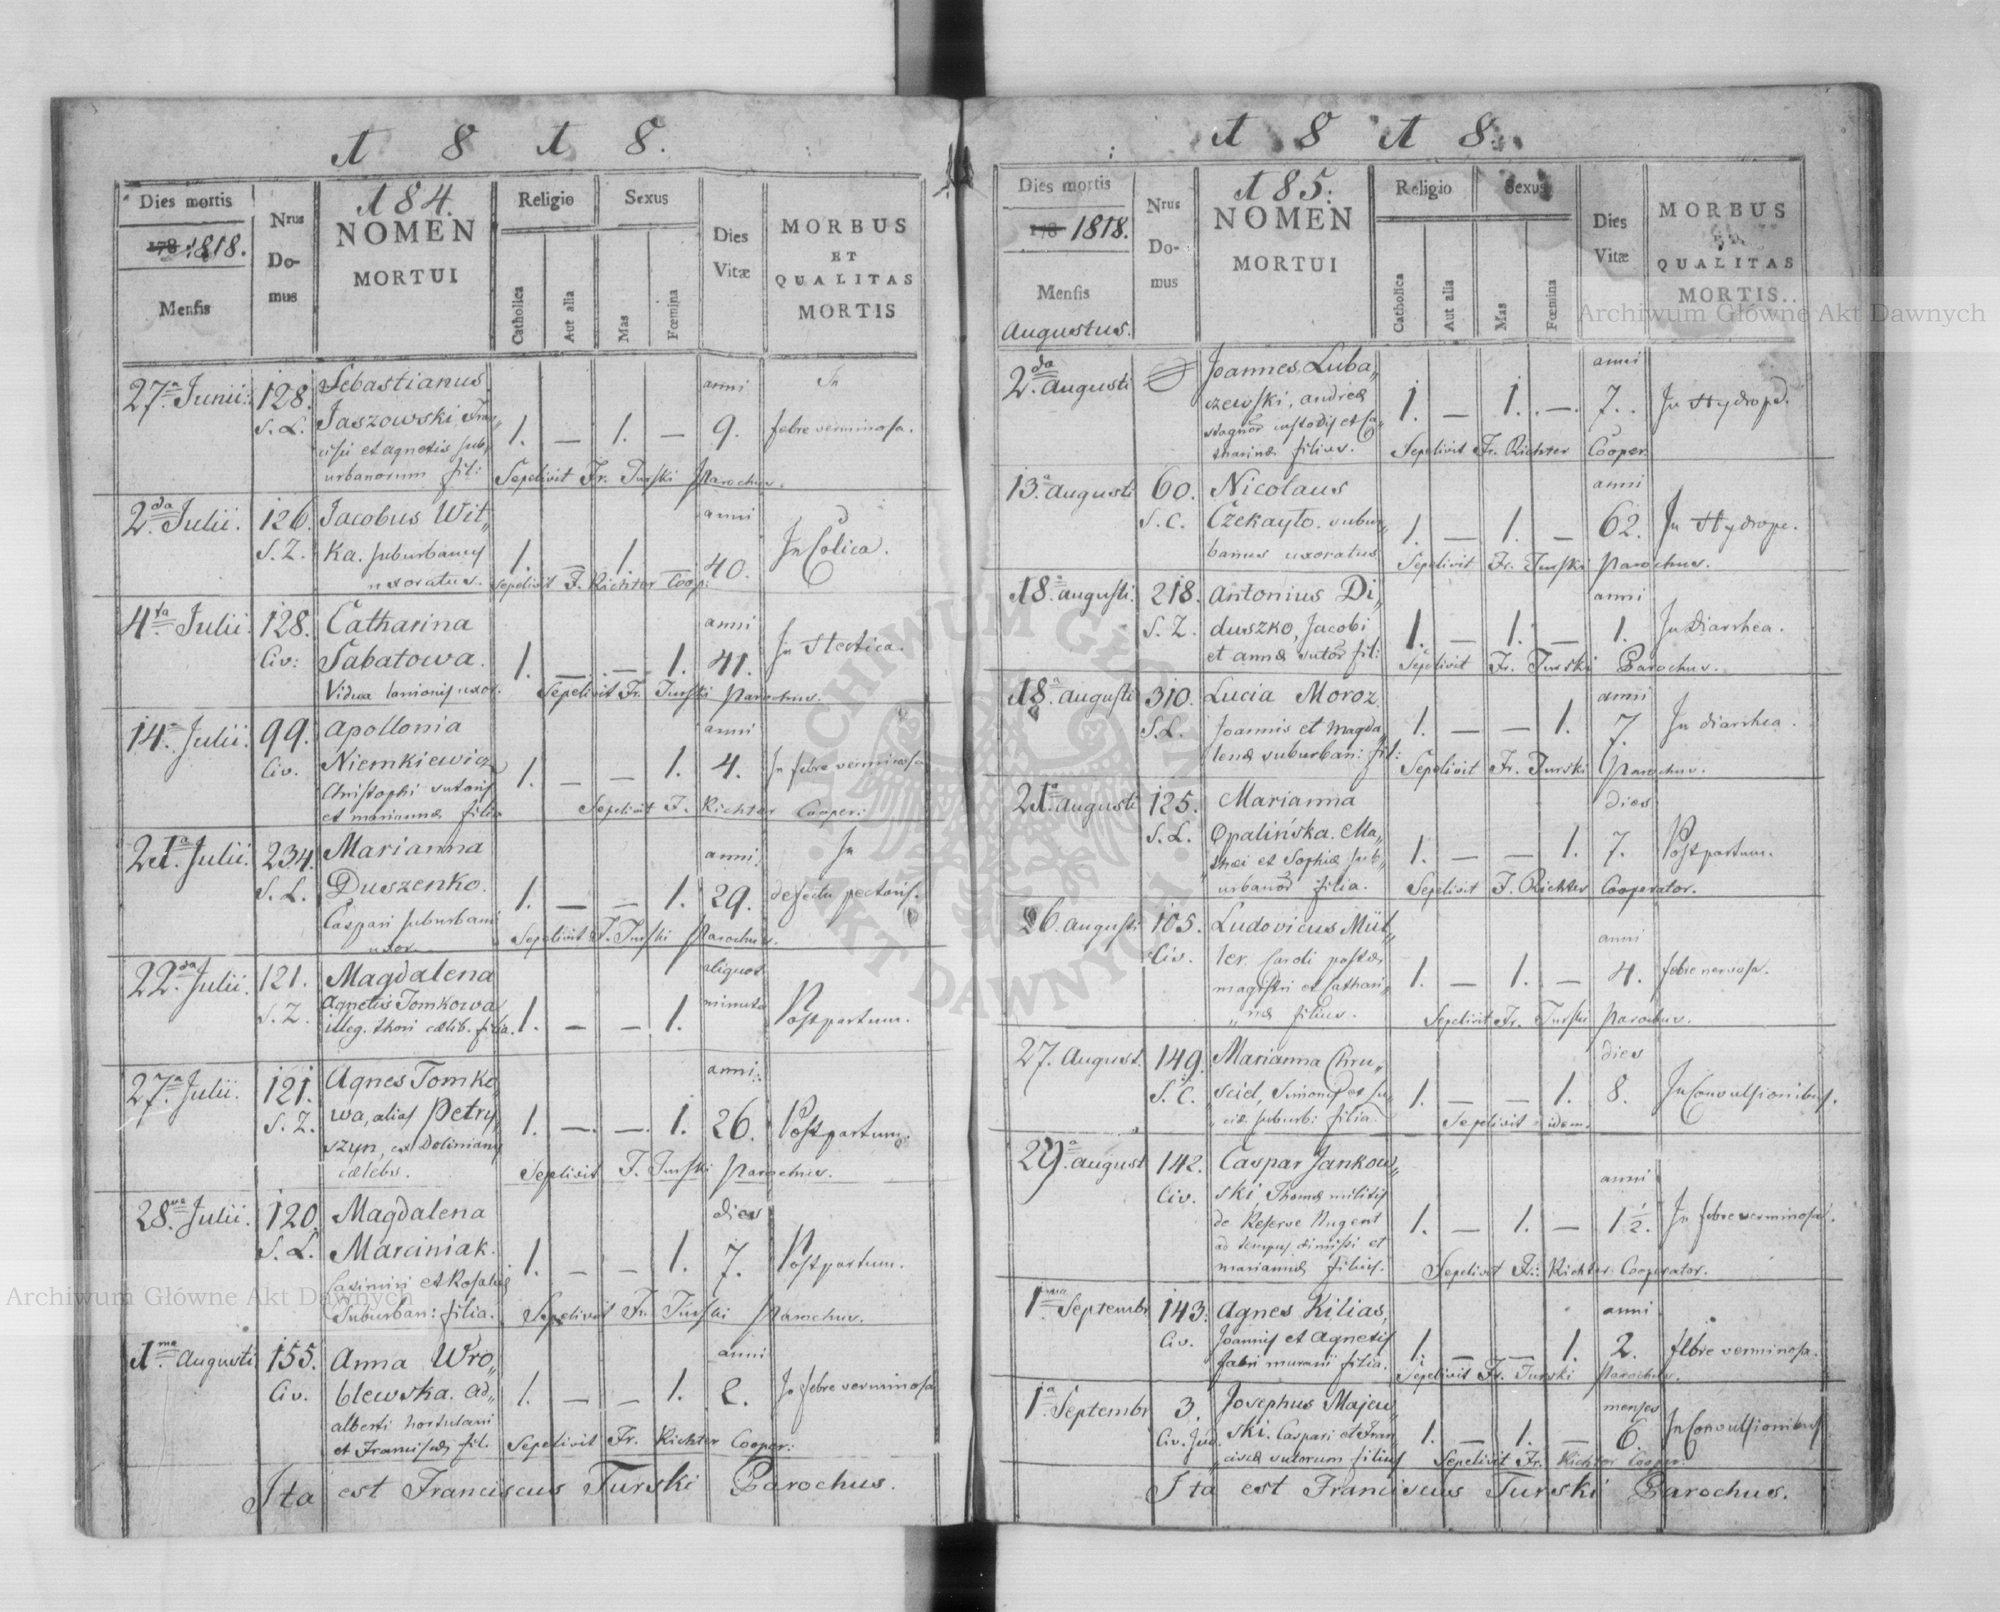 1818.
184.
Dies mortis
178 1818.
Mensis
Nrus
Do-
mus
NOMEN
MORTUI
Religio
Catholica
Aut alia
Sexus
Mas
Fœmina
Dies
Vitæ
MORBUS
ET
QUALITAS
MORTIS
27.a Junii. 128. Sebastianus anni In
S. L. Jaszowski, Fran„ 1. — 1. — 9. febre verminosa.
cisci et Agnetis sub„
urbanorum fil: Sepelivit Fr. Turski Parochus.
2.da Julii. 126. Jacobus Wit„ anni In Colica.
S. Z. Ka. suburbanus 1. — 1. — 40.
uxoratus. Sepelivit F. Richter Coop:
4.ta Julii. 128. Catharina anni In Hectica.
Civ: Sabatowa. 1. — — 1. 41.
Vidua lanionis uxor. Sepelivit Fr. Turski Parochus.
14.a Julii. 99. Apollonia anni
Civ. Niemkiewicz 1. — — 1. 4. In febre verminosa
Christophi sutoris
et Mariannæ filia Sepelivit F. Richter Cooper:
21.a Julii. 234. Marianna anni In
S. L. Duszenko. 1. — — 1. 29. defectu pectoris.
Caspari suburbani
uxor. Sepelivit F. Turski Parochus.
22.da Julii. 121. Magdalena aliquot
S. Z. Agnetis Tomkowa 1. — — 1. minuta Post partum.
illeg. thori cœlib. filia.
27.a Julii. 121. Agnes Tomko„ anni
S. Z. wa, alias Petry„ 1. — — 1. 26. Post partum.
szyn, ex Doliniany
cœlebs. Sepelivit F. Turski Parochus.
28.va Julii. 120. Magdalena dies
S. L. Marciniak. 1. — — 1. 7. Post partum.
Casimiri et Rosaliæ
Suburban: filia. Sepelivit Fr. Turski Parochus.
1.ma Augusti 155. Anna Wro„ anni
Civ. blewska. Ad„ 1. — — 1. 2. In febre verminosa
alberti hortulani
et Franciscæ fil. Sepelivit Fr. Richter Cooper:
Ita est Franciscus Turski Parochus.
1818.
185.
Dies mortis
178 1818.
Mensis
Augustus.
Nrus
Do-
mus
NOMEN
MORTUI
Religio
Catholica
Aut alia
Sexus
Mas
Fœmina
Dies
Vitæ
MORBUS
ET
QUALITAS
MORTIS.
2.da Augusti Joannes Luba„ anni
czewski, Andreæ 1. — 1. — 7. In Hydrop.
stagnor custodis et Ca„
tharinæ filius. Sepelivit Fr. Richter Cooper
13.a Augusti 60. Nicolaus anni
S. C. Czekayło. subur„ 1. — 1. — 62. In Hydrope.
banus uxoratus Sepelivit Fr. Turski Parochus.
18.a Augusti. 218. Antonius Di„ anni
S. Z. duszko, Jacobi 1. — 1. — 1. In Diarrhea.
et Annæ sutor fil: Sepelivit Fr. Turski Parochus.
18.a Augusti 310. Lucia Moroz anni
S. L. Joannis et Magda„ 1. — — 1. 7. In diarrhea.
lenæ suburban: fil: Sepelivit Fr. Turski Parochus.
21.a Augusti 125. Marianna dies
S. L. Opalińska. Ma„ 1. — — 1. 7. Post partum.
thæi et Sophiæ sub„
urbanor filia. Sepelivit F. Richter Cooperator.
26. Augusti 105. Ludovicus Mül„ anni
Civ. ler. Caroli postæ 1. — 1. — 4. febre nervosa.
magistri et Cathari„
„næ filius. Sepelivit Fr. Turski Parochus.
27. August. 149. Marianna Chru„ dies
S. C. sciel, Simonis et Lu„ 1. — — 1. 8. In Convulsionibus.
„ciæ suburb: filia. Sepelivit idem.
29.a August 142. Caspar Jankow„ anni
Civ. ski Thomæ militis 1. — 1. — 1½. In febre verminosa.
de Reserve Nugent
ad tempus dimissi et
Mariannæ filius. Sepelivit Fr: Richter Cooperator.
1.ma Septembr 143. Agnes Kilias, anni
Civ. Joannis et Agnetis 1. — — 1. 2. febre verminosa.
fabri murarii filia. Sepelivit Fr. Turski Parochus.
1.a Septembr 3. Josephus Majew„ menses
Civ. Jud. ski. Caspari et Fran„ 1. — 1. — 6. In Convulsionibus
ciscæ sutorum filius Sepelivit Fr. Richter Cooper:
Ita est Franciscus Turski Parochus.
Archiwum Główne Akt Dawnych
Archiwum Główne Akt Dawnych
ARCHIWUM GŁÓWNE AKT DAWNYCH